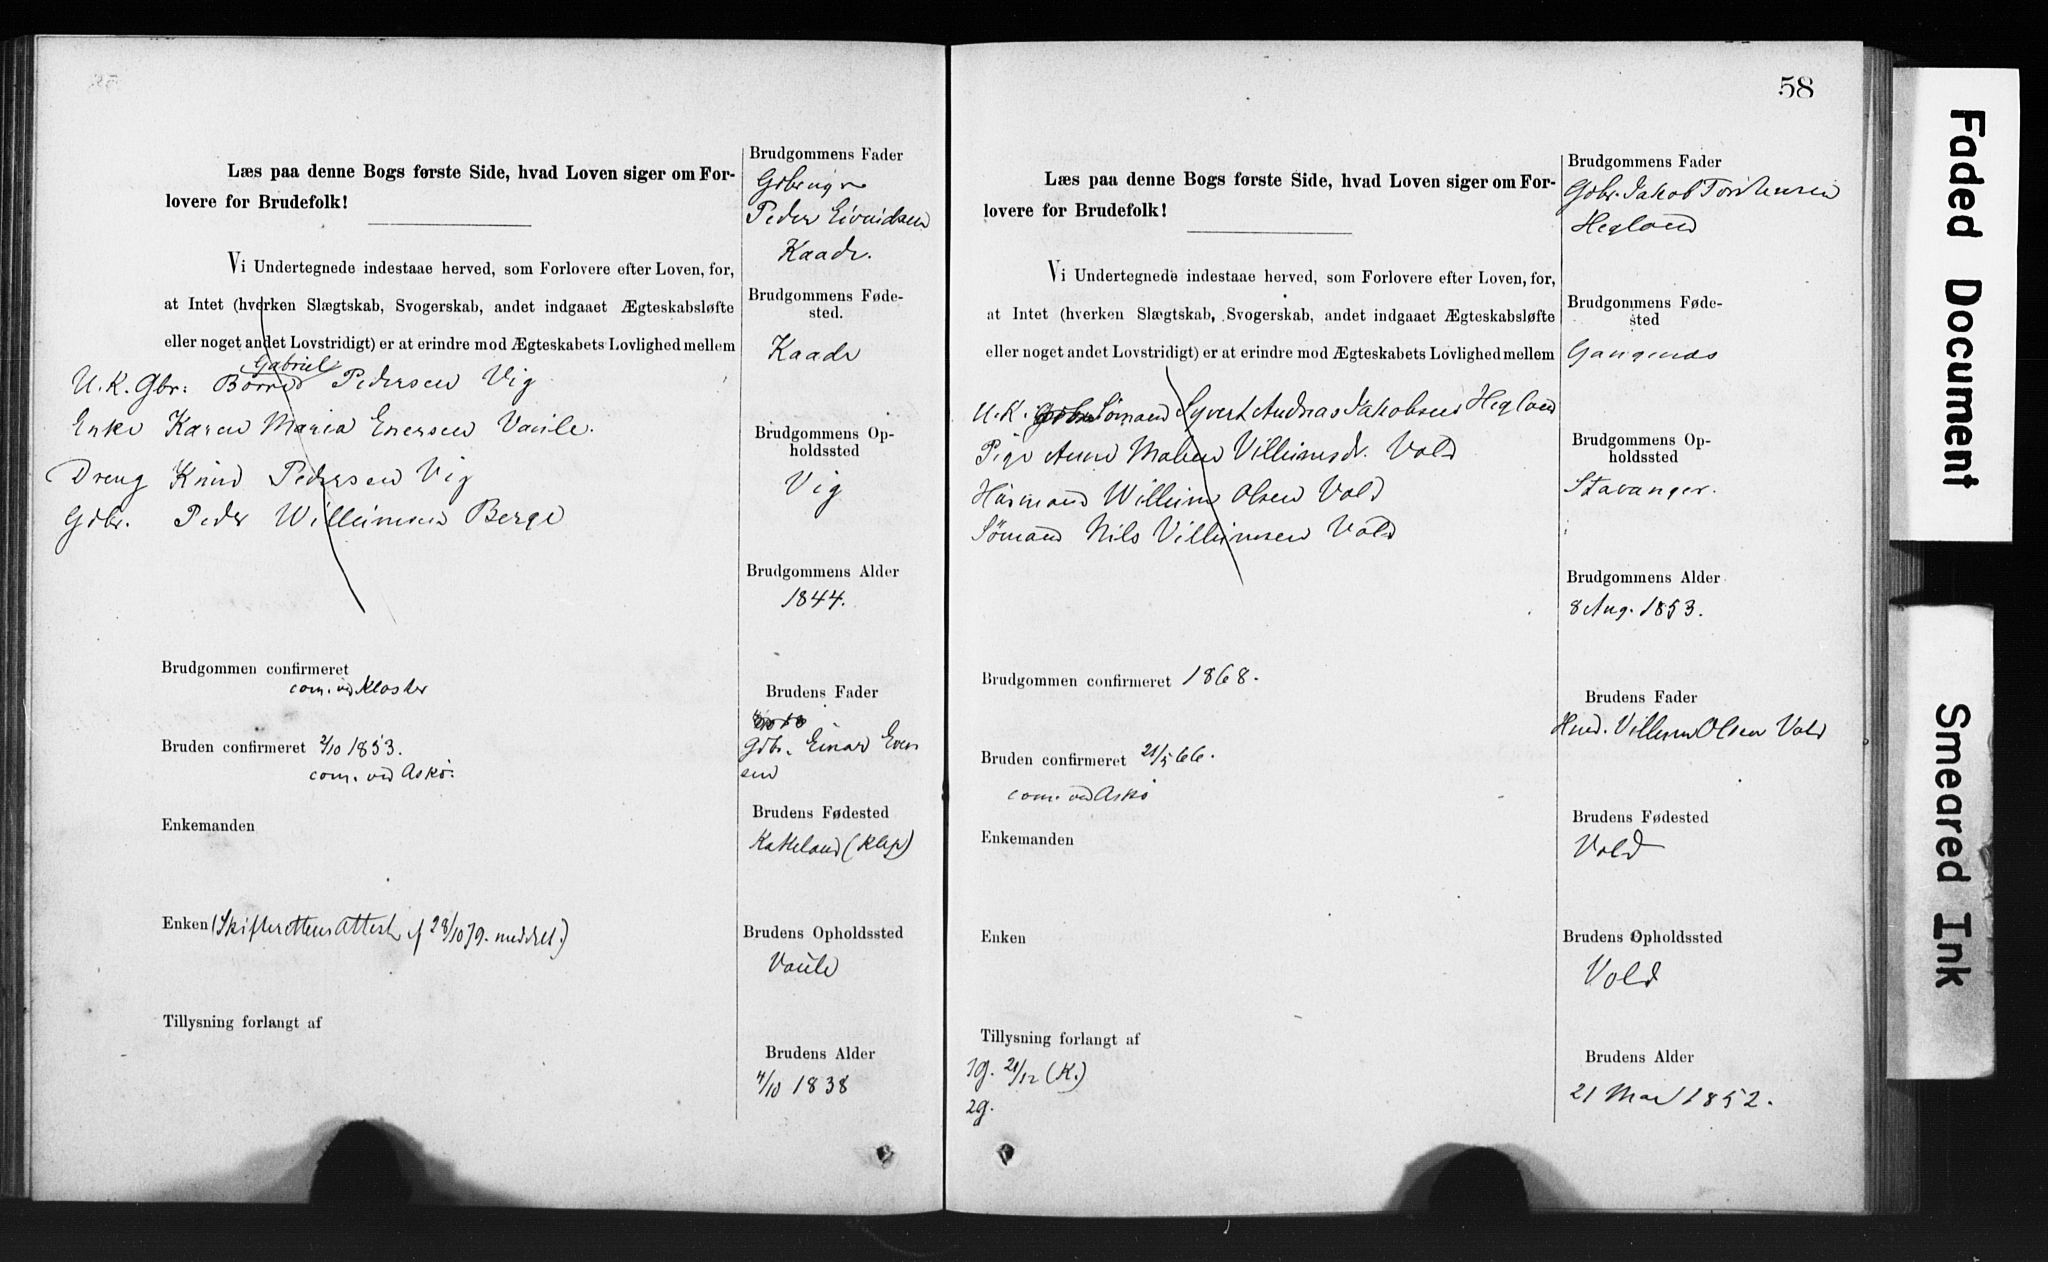 Læs paa denne Bogs første Side, hvad Loven siger om For-
lovere for Brudefolk!
Vi Undertegnede indestaae herved, som Forlovere efter Loven, for,
at Intet (hverken Slægtskab, Svogerskab, andet indgaaet Ægteskabsløfte
eller noget andet Lovstridigt) er at erindre mod Ægteskabets Lovlighed mellem
Gabriel
U. K. Gbr: Pedersen Vig
Enke Karen Maria Enersen Vaule.
Dreng Knud Pedersen Vig
Gdbr. Peder Willumsen Berge
Brudgommen confirmeret
com. ved Kloster
Bruden confirmeret 2/10 1853.
com. ved Askø.
Enkemanden
Enken (Skifterettens Attest af 28/10 79. meddelt.)
Tillysning forlangt af
Brudgommens Fader
Peder Eivindsen
Kaade.
Brudgommens Føde-
sted.
Kaade
Brudgommens Op-
holdssted
Vig
Brudgommens Alder
1844.
Brudens Fader
Gdbr. Einar Ever
sen
Brudens Fødested
Katteland (Klep)
Brudens Opholdssted
Vaule
Brudens Alder
4/10 1838
58
Læs paa denne Bogs første Side, hvad Loven siger om For-
lovere for Brudefolk!
Vi Undertegnede indestaae herved, som Forlovere efter Loven, for,
at Intet (hverken Slægtskab, Svogerskab, andet indgaaet Ægteskabsløfte
eller noget andet Lovstridigt) er at erindre mod Ægteskabets Lovlighed mellem
U. K. Sømand Syvert Andreas Jakobsen Hegland
Pige Anne Malene Villumsdr. Vold
Husmand Willum Olsen Vold
Sømand Nils Villumsen Vold
Brudgommen confirmeret 1868.
Bruden confirmeret 21/5 66.
com. ved Askø
Enkemanden
Enken
Tillysning forlangt af
1g. 21/12 (K.)
2g.
Brudgommens Fader
Gdbr. Jakob Torstensen
Hegland
Brudgommens Føde-
sted
Gangenæs
Brudgommens Op-
holdssted
Stavanger.
Brudgommens Alder
8 Aug. 1853.
Brudens Fader
Hmd. Villum Olsen Vold
Brudens Fødested
Vold
Brudens Opholdssted
Vold
Brudens Alder
21 Mai 1852.
Faded Document
Smeared Ink